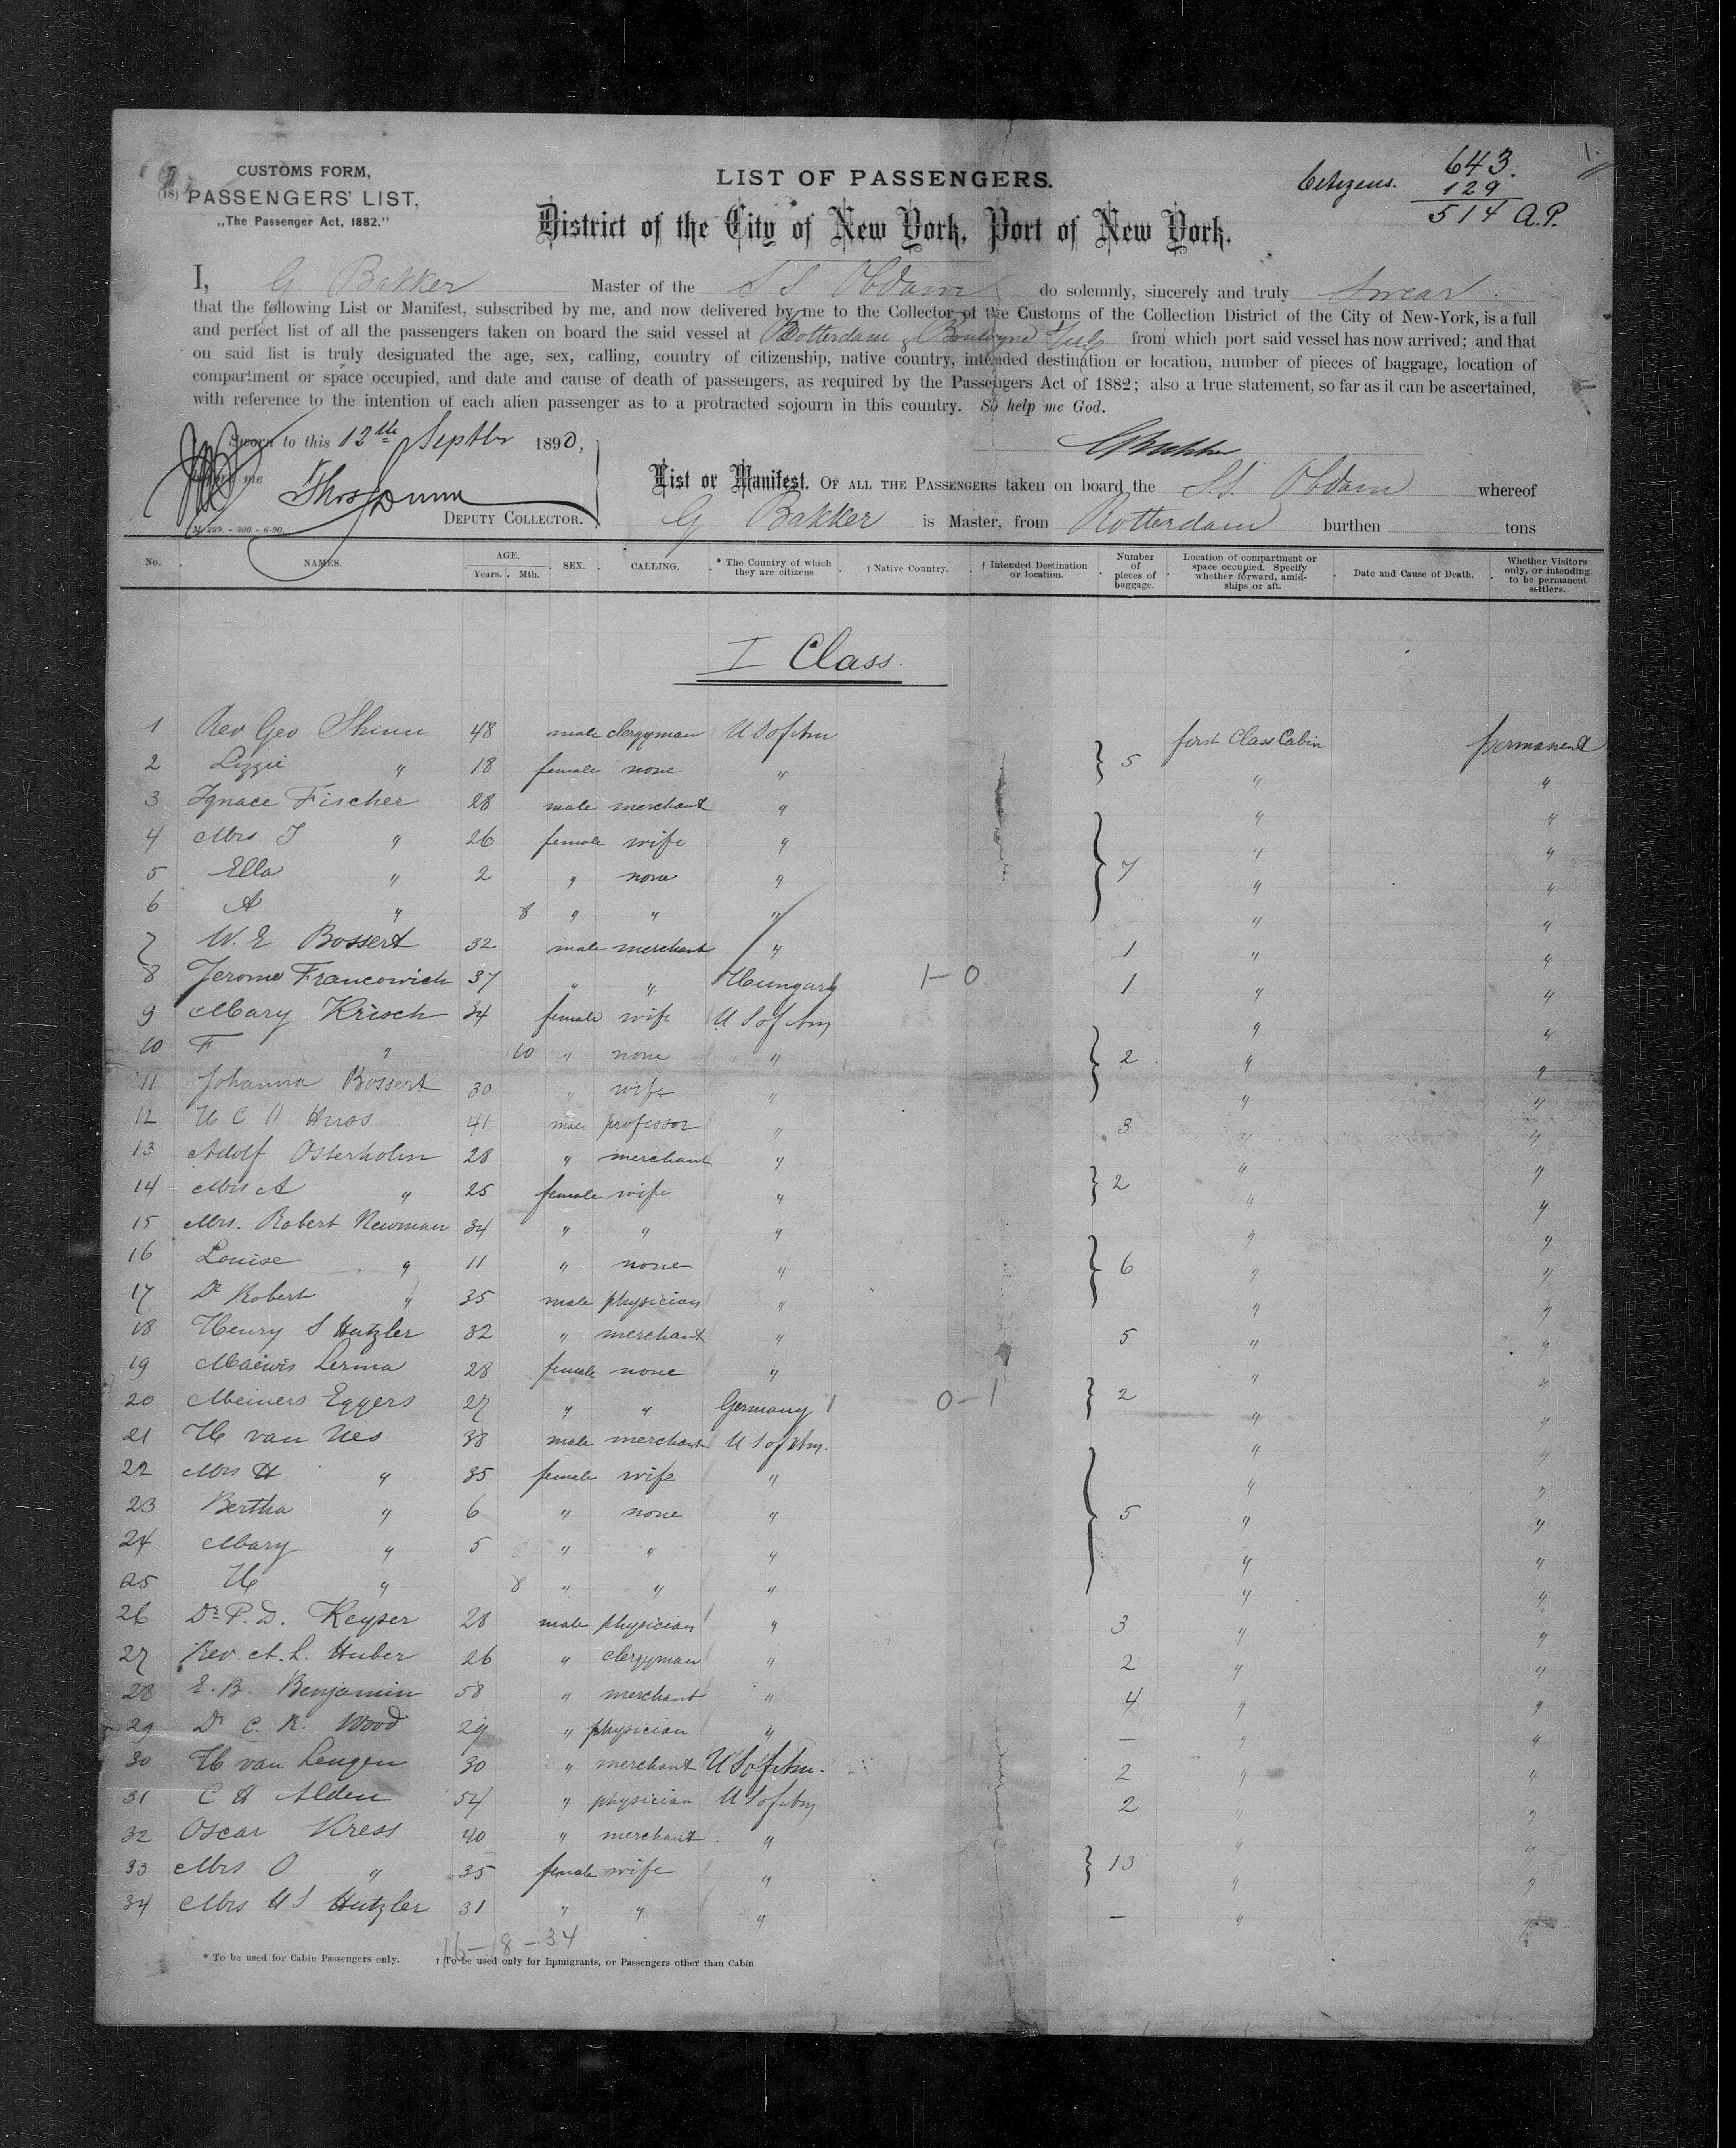 CUSTOMS FORM,
(18) PASSENGERS' LIST,
„The Passenger Act, 1882."
LIST OF PASSENGERS.
District of the City of New York, Port of New York.
Citizens. 643.
129
514 A.P.
1.
I, G Bakker Master of the S S Obdam do solemnly, sincerely and truly swear
that the following List or Manifest, subscribed by me, and now delivered by me to the Collector of the Customs of the Collection District of the City of New-York, is a full
and perfect list of all the passengers taken on board the said vessel at Rotterdam & Boulogne from which port said vessel has now arrived; and that
on said list is truly designated the age, sex, calling, country of citizenship, native country, intended destination or location, number of pieces of baggage, location of
compartment or space occupied, and date and cause of death of passengers, as required by the Passengers Act of 1882; also a true statement, so far as it can be ascertained,
with reference to the intention of each alien passenger as to a protracted sojourn in this country. So help me God.
Sworn to this 12th Septbr 1890,
GBakker
me
Thos Dunn
DEPUTY COLLECTOR.
M. 299. - 300 - 6-90.
List or Manifest. OF ALL THE PASSENGERS taken on board the S.S. Obdam whereof
G Bakker is Master, from Rotterdam burthen tons
No. NAMES. AGE. Years. Mth. SEX. CALLING. * The Country of which they are citizens † Native Country. † Intended Destination or location. Number of pieces of baggage. Location of compartment or space occupied. Specify whether forward, amid-ships or aft. Date and Cause of Death. Whether Visitors only, or intending to be permanent settlers.
I Class.
1 Rev Geo Shinn 48 male clergyman U S of Am first Class Cabin permanent
2 Lizzie " 18 female none " 5 " "
3 Ignace Fischer 28 male merchant " " "
4 Mrs I " 26 female wife " " "
5 Ella " 2 " none " 7 " "
6 A " 8 " " " " "
7 W. E Bossert 32 male merchant " 1 " "
8 Jerome Francowich 37 " " Hungary 1-0 1 " "
9 Mary Krisch 34 female wife U S of Am " "
10 F " 10 " none " 2 " "
11 Johanna Bossert 30 " wife " " "
12 H C O Huss 41 male professor " 3 " "
13 Adolf Osterholm 28 " merchant " " "
14 Mrs A " 25 female wife " 2 " "
15 Mrs. Robert Newman 34 " " " " "
16 Louise " 11 " none " 6 " "
17 Dr Robert " 35 male physician " " "
18 Henry S Hutzler 32 " merchant " 5 " "
19 Maewis Lerma 28 female none " " "
20 Meiners Eggers 27 " " Germany 1 0-1 2 " "
21 H van Nes 38 male merchant U S of Am. " "
22 Mrs H " 35 female wife " " "
23 Bertha " 6 " none " 5 " "
24 Mary " 5 " " " " "
25 H " 8 " " " " "
26 Dr P. D. Keyser 28 male physician " 3 " "
27 Rev. A. L. Huber 26 " clergyman " 2 " "
28 E. B. Benjamin 58 " merchant " 4 " "
29 Dr C. R. Wood 29 " physician " — " "
30 H van Lengen 30 " merchant U S of Am. 2 " "
31 C H Alden 54 " physician U S of Am 2 " "
32 Oscar Kress 40 " merchant " " "
33 Mrs O " 35 female wife " 13 " "
34 Mrs H S Hutzler 31 " " " — " "
16-18-34
* To be used for Cabin Passengers only. † To be used only for Immigrants, or Passengers other than Cabin.